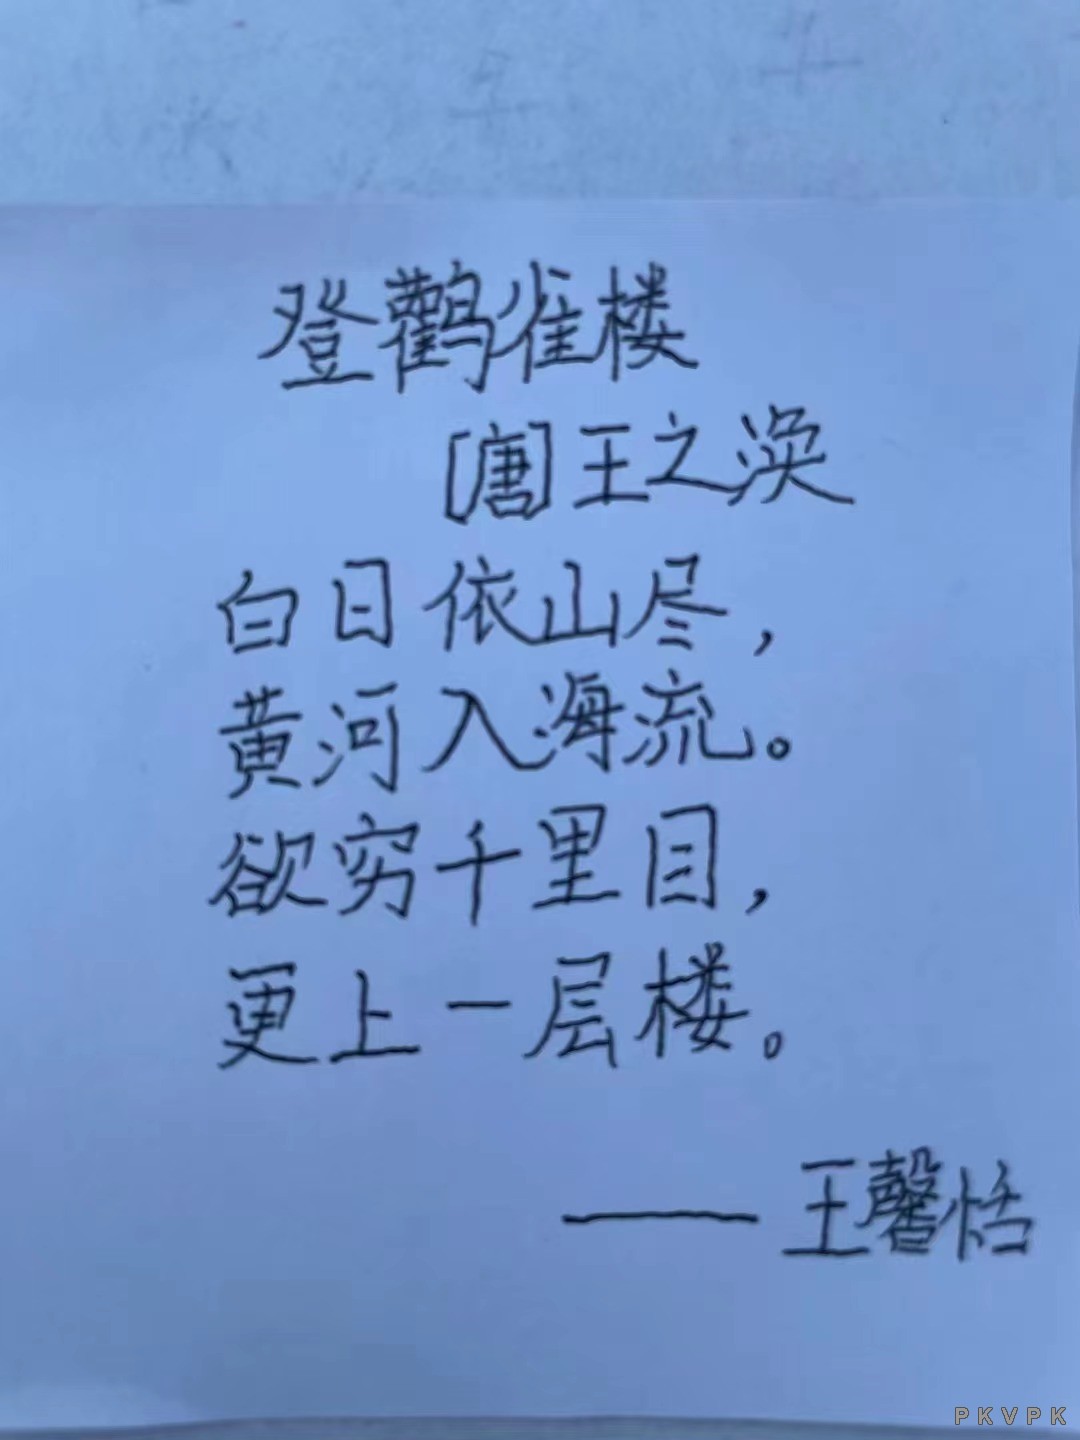 登鹳雀楼
[唐]王之涣
白日依山尽，
黄河入海流。
欲穷千里目，
更上一层楼。
——王馨恬
PKVPK